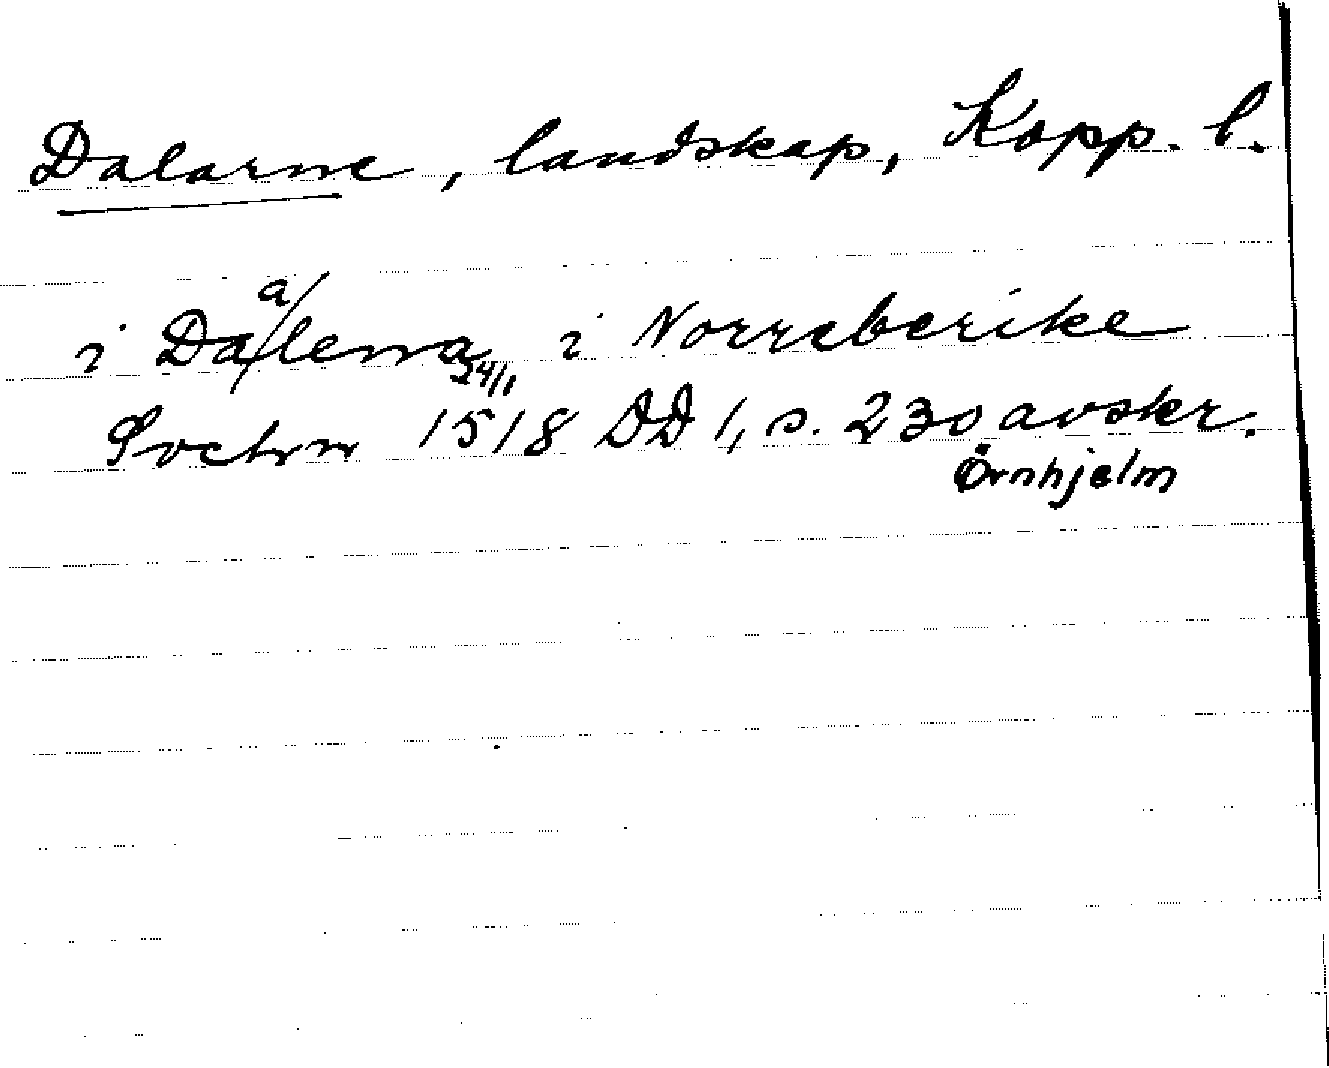 Dalarne, landskap, Kopp. l.
i Dalerna i Norreberike
a/
24/1
1518 DD 1, s. 230 avskr.
Örnhjelm